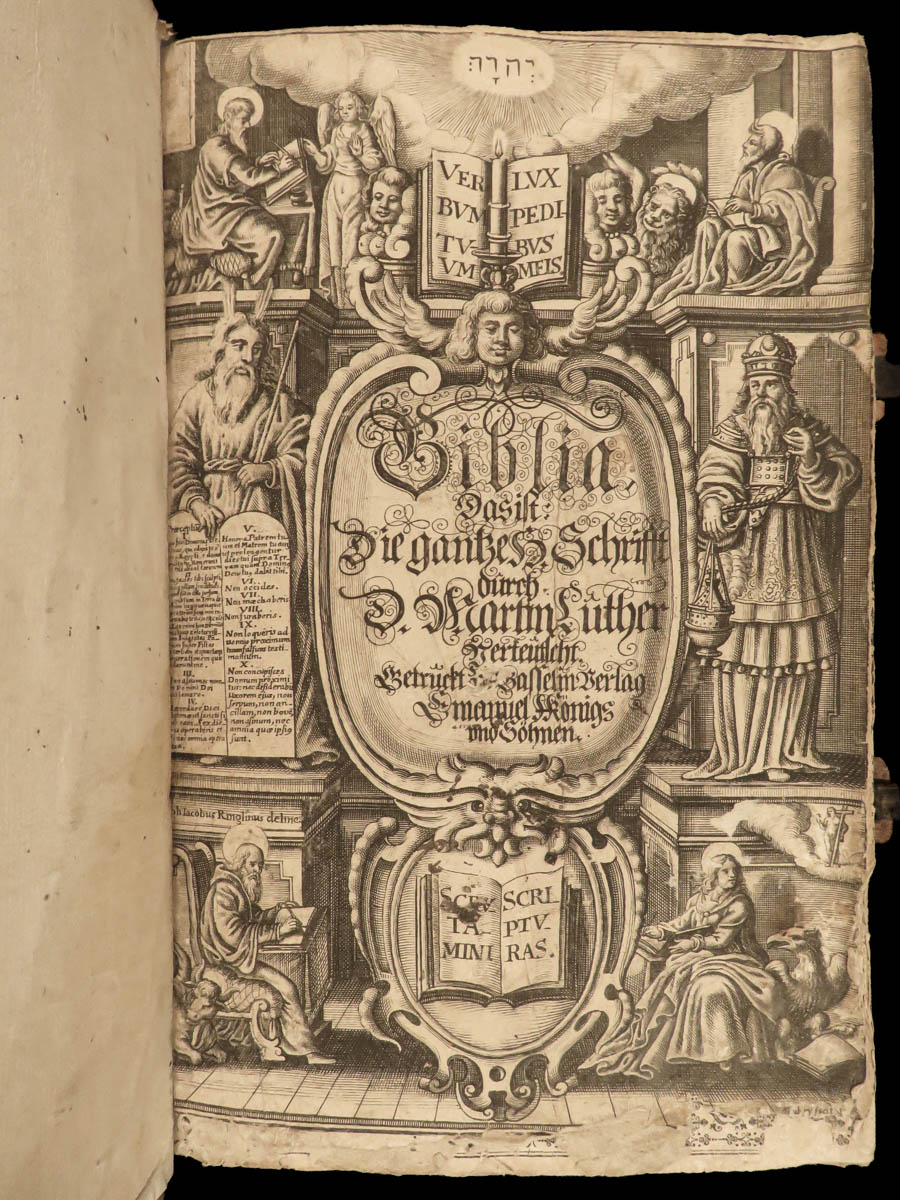 יְהוָה
VER LUX
BUM PEDI
TU BUS
UM MEIS
Biblia,
Das ist:
Die gantze H. Schrifft
durch
D. Martin Luther
Verteütscht.
Getruckt zu Bassel in Verlag
Emanuel Königs
und Söhnen.
V.
Honora Patrem tu
um et Matrem tuam
ut prolongentur
dies tui super Ter
ram quam Dominus
Deus tuus dabit tibi.
VI.
Non occides.
VII.
Non mæchaberis.
VIII.
Non furaberis.
IX.
Non loqueris ad
versus proximum
tuum falsum testi
monium.
X.
Non concupisces
Domum proximi
tui; nec desiderabis
Uxorem ejus, non
servum, non an
cillam, non bovem
non asinum, nec
omnia quæ ipsius
sunt.
III.
IV.
Iacobus Ringlinus deline.
SCRU SCRI
TA- PTU-
MINI RAS.